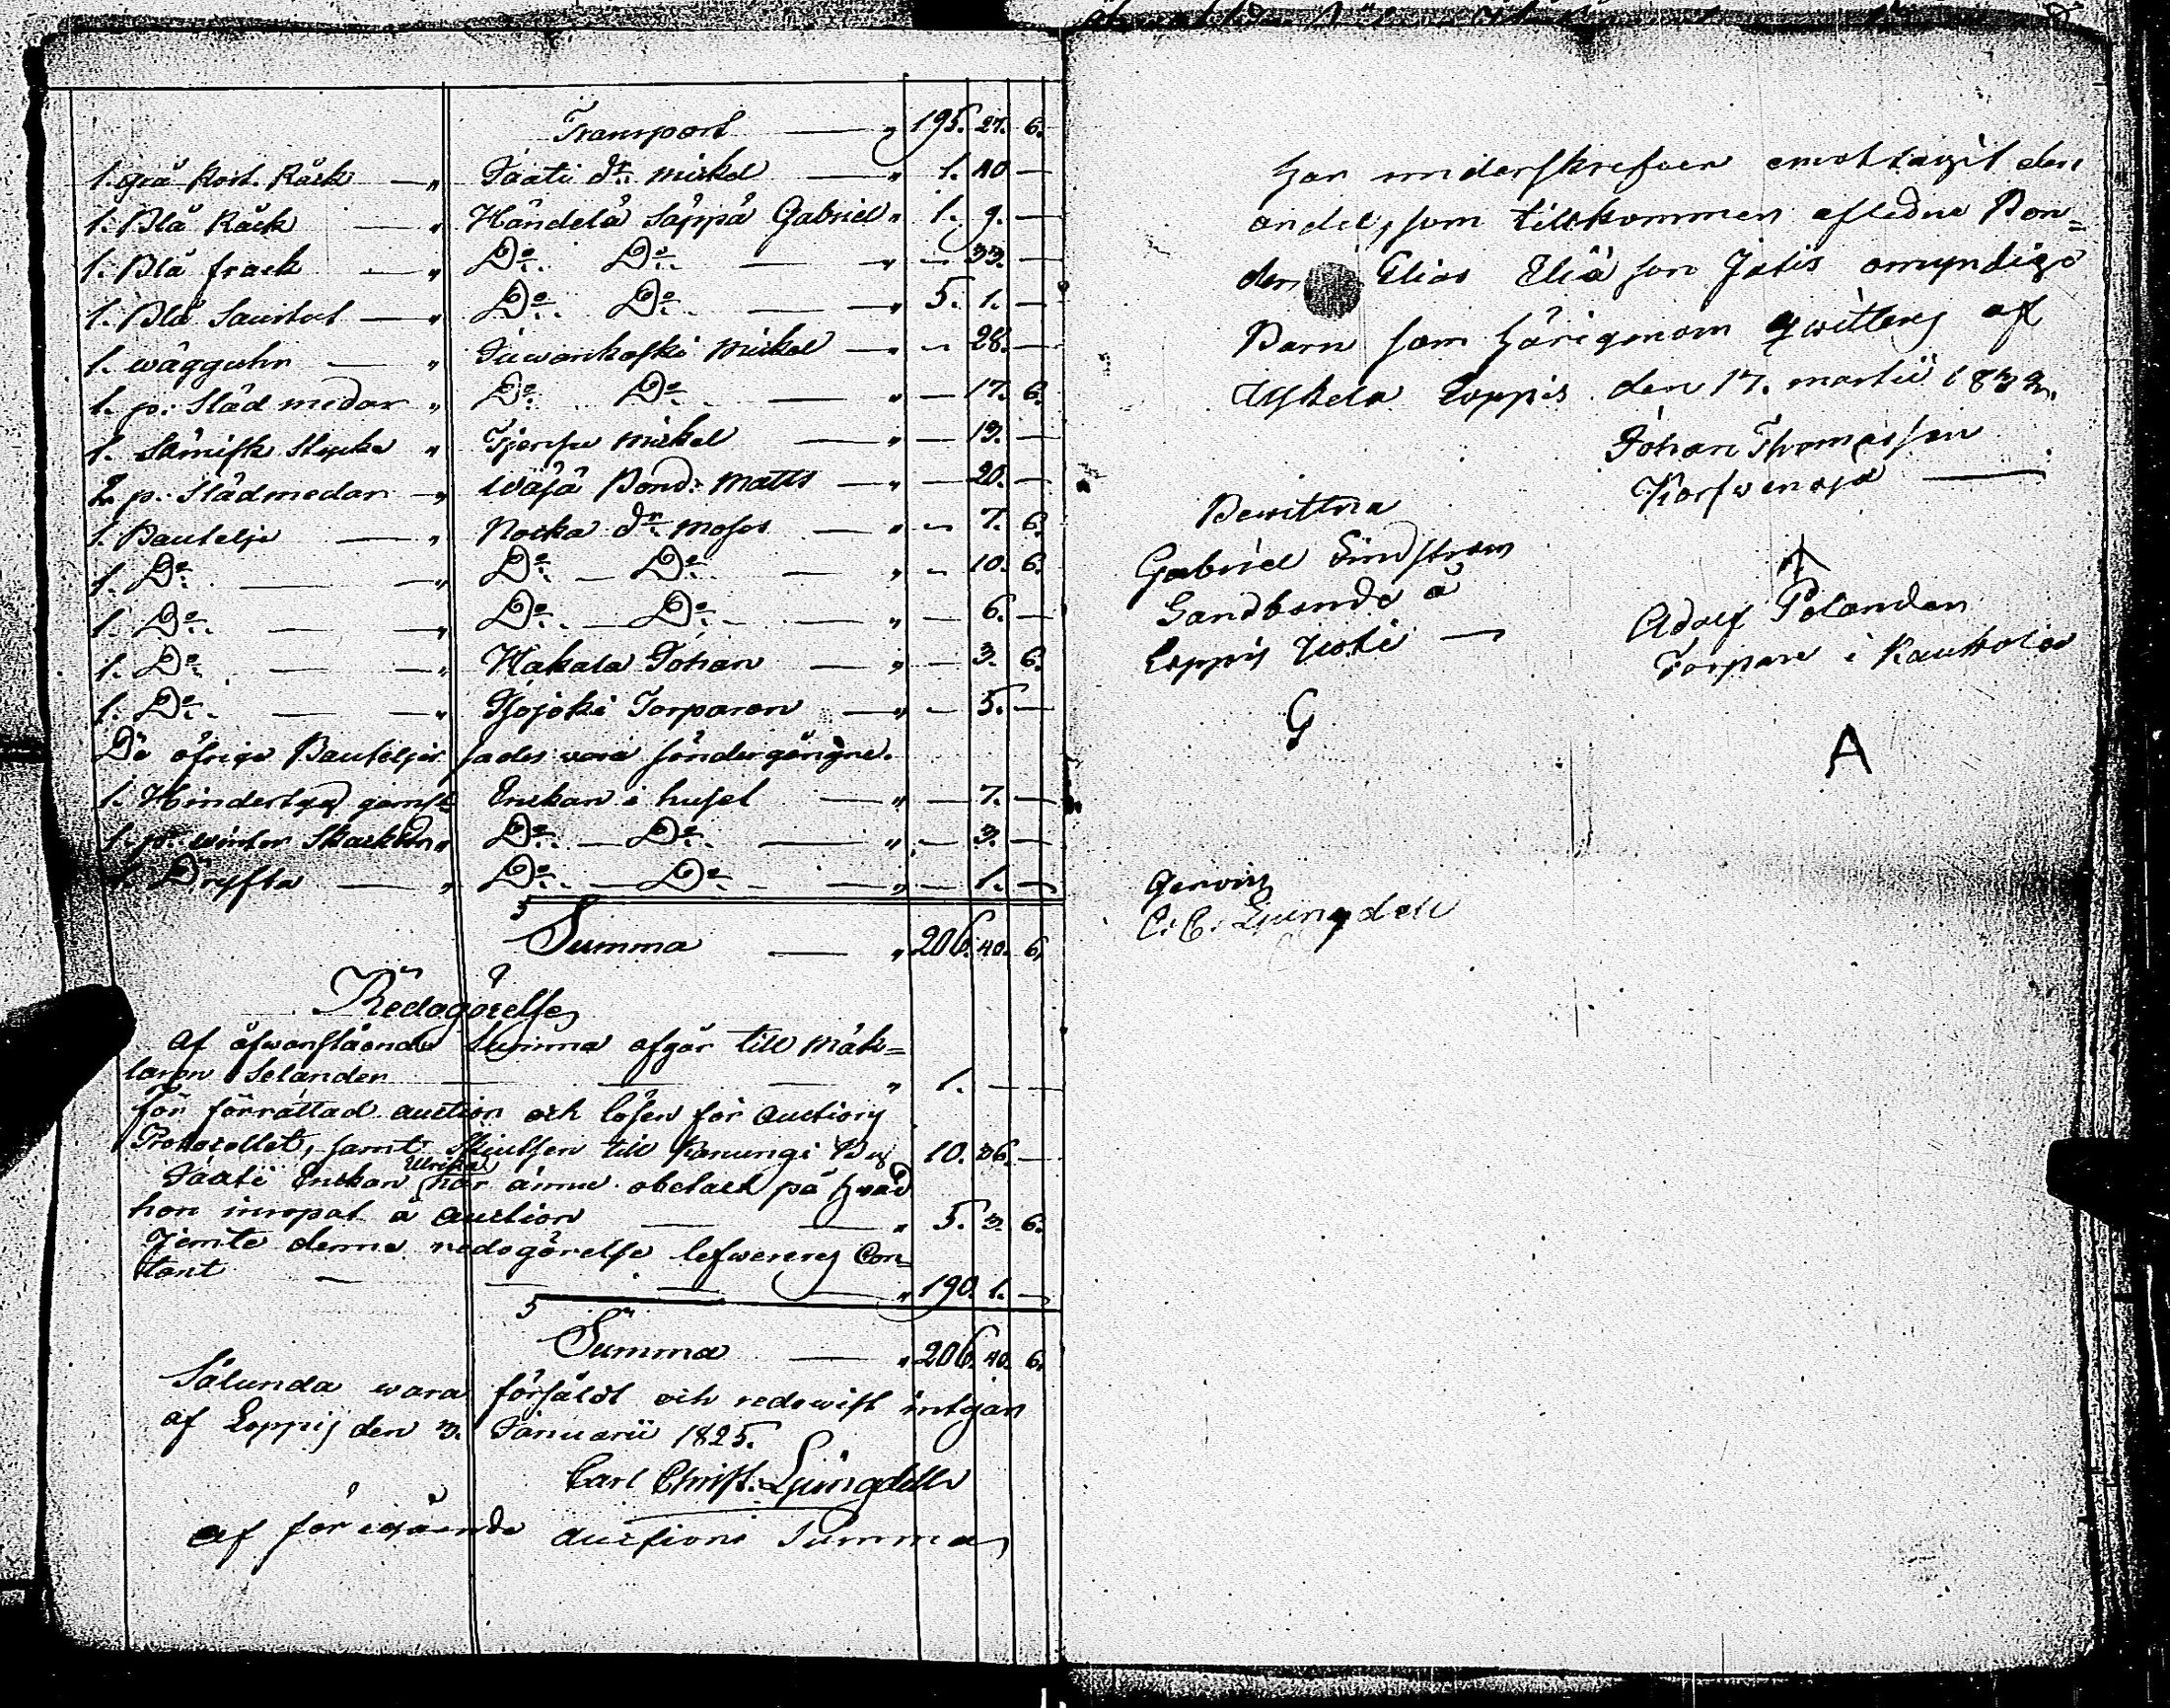 Transport — " 195. 27. 6.
1. grå kort. Råck — " Taati dr. Mickel — " 1. 40 —
1. Blå Råck — " Händelä Säppä Gabriel " 1. 9. —
1. Blå frack — " Do. Do. — " — 33. —
1. Blå — " Do. Do. — " 5. 1. —
1. wägguhr — " Mickel — " — 28. —
1. p. Släd medar " Do. Do. — " — 17. 6.
1. Sämisk stycke " Mickel — " — 13. —
2. p. Slädmedar — " Wäjä Bond. Matts — " — 20. —
1. Bautelje — " Nocka dn. Moses — " — 7. 6.
1. Do. — " Do. — Do. — " — 10. 6.
1. Do. — — " Do. — Do. — " — 6. —
1. Do. — — " Hakala Johan — " — 3. 6.
1. Do. — — " Torparen — " — 5. —
De öfrige Bauteljer sades vara söndergångne.
1. gamt. Enckan i huset — " — 7. —
1. pr. winter " Do. — Do. — " — 3. —
1. Dryfta — " Do. — Do. — " — 1. —
Summa — " 206. 40. 6.
Redogörelse
Af åfwanstående Summa afgår till Mäk=
laren Selander — — — " 1. — —
för förrättad auction och lösen för Auctions
Protocollet, samt Skiutsen till 10. 36. —
Taati Enckan Ulrika har ännu obetalt på hvad
hon inropat å auction — — " 5. 3. 6.
Jemte denna redogörelse lefwereres Con=
tant — — — " 190. 1. —
Summa — " 206. 40. 6.
Sålunda wara försåldt och redowist intygar
af Loppis den 3. Januarii 1825.
Carl Christ. Ljungdell
Af föregående auctions Summa
har underskrefven emottagit den
andel, som tillkommer afledne Bon=
den Elias Eliä son Jatis omyndige
Barn som härigenom qwitteres af
Loppis den 17. martii 1833.
Johan Thomasson
Bewittna
Gabriel Lindström
Landbonde å
Loppis
Adolf Polandan
Torpare i Kaukola
G
A
C. C. Ljungdell